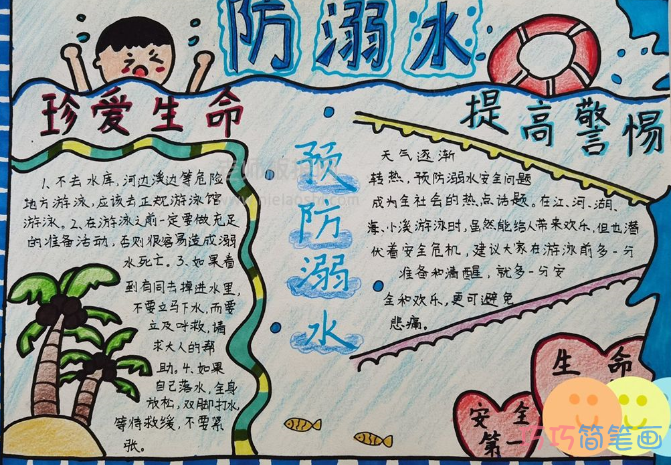 防溺水
珍爱生命
提高警惕
1、不去水库,河边溪边等危险
地方游泳,应该去正规游泳馆
游泳。2、在游泳之前一定要做充足
的准备活动,否则很容易造成溺
水死亡。3、如果看
到有同志掉进水里,
不要立马下水,而要
立及呼救,请
求大人的帮
助。4、如果
自己落水,全身
放松,双脚打水,
等待救援,不要紧
张。
预
防
溺
水
天气逐渐
转热,预防溺水安全问题
成为全社会的热点话题。在江、河、湖、
海、小溪游泳时,虽然能给人带来欢乐,但也潜
伏着安全危机,建议大家在游泳前多一分
准备和清醒,就多一分安
全和欢乐,更可避免
悲痛。
生命
安全
第一
巧巧简笔画